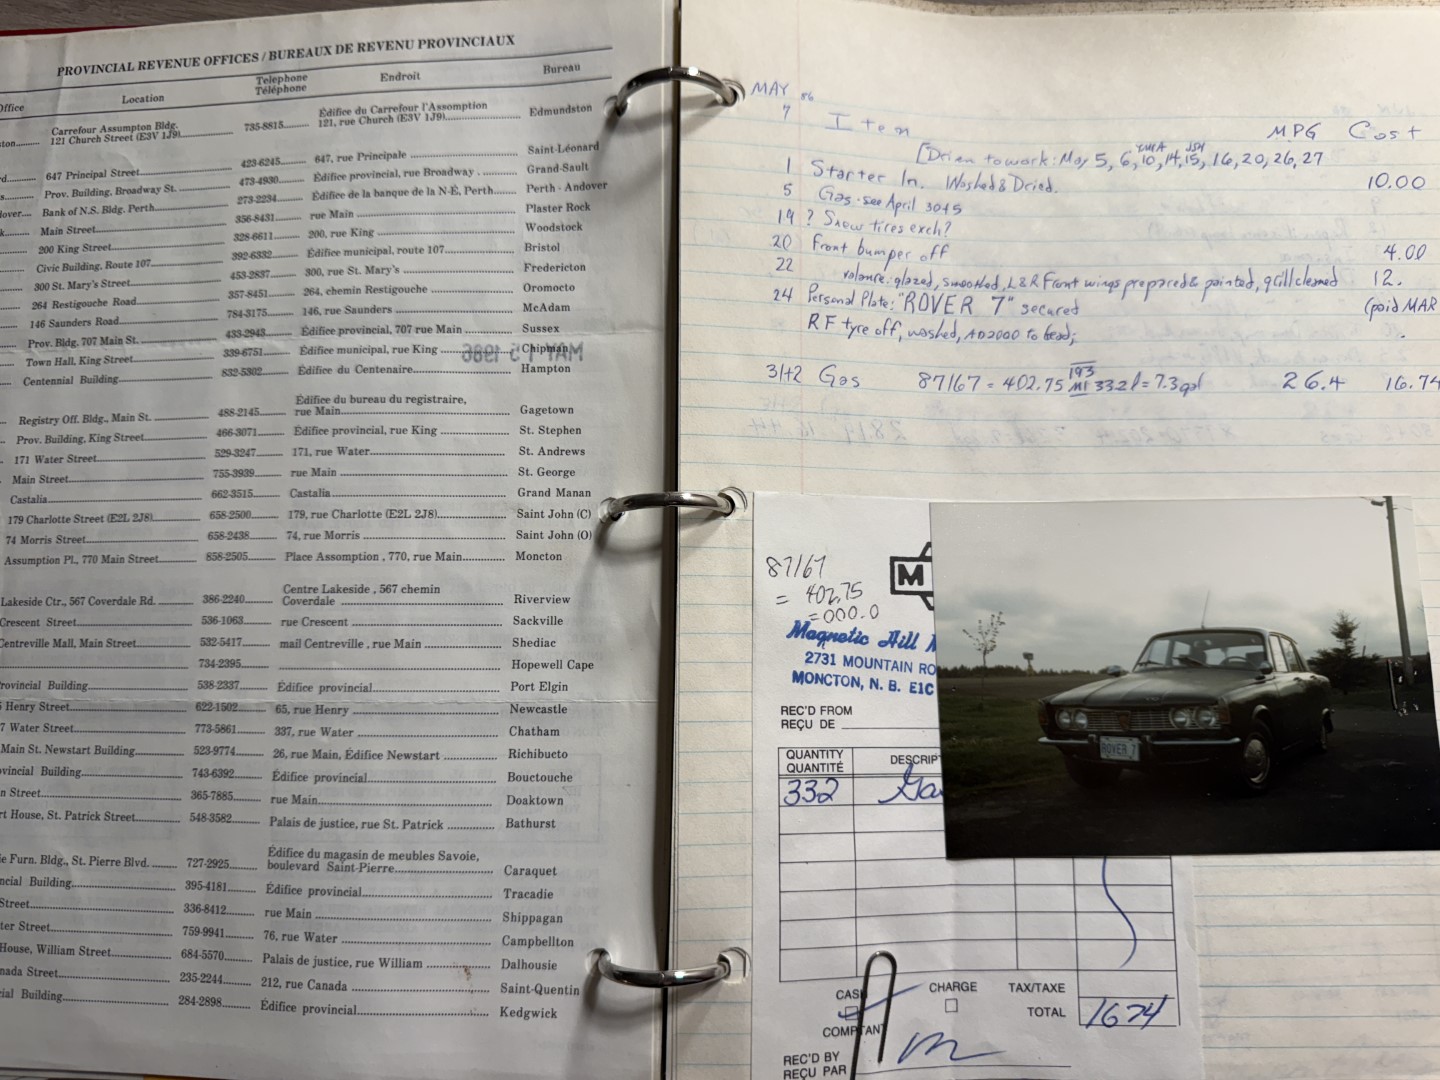 PROVINCIAL REVENUE OFFICES / BUREAUX DE REVENU PROVINCIAUX
Office Location Telephone Téléphone Endroit Bureau
Carrefour Assumption Bldg. Édifice du Carrefour l'Assomption
121 Church Street (E3V 1J9) 735-8815 121, rue Church (E3V 1J9) Edmundston
647 Principal Street 423-6245 647, rue Principale Saint-Léonard
Prov. Building, Broadway St. 473-4930 Édifice provincial, rue Broadway Grand-Sault
Bank of N.S. Bldg. Perth 273-2234 Édifice de la banque de la N-É, Perth Perth - Andover
Main Street 356-8431 rue Main Plaster Rock
200 King Street 328-6611 200, rue King Woodstock
Civic Building, Route 107 392-6332 Édifice municipal, route 107 Bristol
300 St. Mary's Street 453-2837 300, rue St. Mary's Fredericton
264 Restigouche Road 357-8451 264, chemin Restigouche Oromocto
146 Saunders Road 784-3175 146, rue Saunders McAdam
Prov. Bldg. 707 Main St. 433-2943 Édifice provincial, 707 rue Main Sussex
Town Hall, King Street 339-6751 Édifice municipal, rue King Chipman
Centennial Building 832-5302 Édifice du Centenaire Hampton
MAY 15 1986
Édifice du bureau du registraire,
Registry Off. Bldg., Main St. 488-2145 rue Main Gagetown
Prov. Building, King Street 466-3071 Édifice provincial, rue King St. Stephen
171 Water Street 529-3247 171, rue Water St. Andrews
Main Street 755-3939 rue Main St. George
Castalia 662-3515 Castalia Grand Manan
179 Charlotte Street (E2L 2J8) 658-2500 179, rue Charlotte (E2L 2J8) Saint John (C)
74 Morris Street 658-2438 74, rue Morris Saint John (O)
Assumption Pl., 770 Main Street 858-2505 Place Assomption , 770, rue Main Moncton
Centre Lakeside , 567 chemin
Lakeside Ctr., 567 Coverdale Rd. 386-2240 Coverdale Riverview
Crescent Street 536-1063 rue Crescent Sackville
Centreville Mall, Main Street 532-5417 mail Centreville , rue Main Shediac
734-2395 Hopewell Cape
Provincial Building 538-2337 Édifice provincial Port Elgin
Henry Street 622-1502 65, rue Henry Newcastle
7 Water Street 773-5861 337, rue Water Chatham
Main St. Newstart Building 523-9774 26, rue Main, Édifice Newstart Richibucto
vincial Building 743-6392 Édifice provincial Bouctouche
n Street 365-7885 rue Main Doaktown
rt House, St. Patrick Street 548-3582 Palais de justice, rue St. Patrick Bathurst
Édifice du magasin de meubles Savoie,
ie Furn. Bldg., St. Pierre Blvd. 727-2925 boulevard Saint-Pierre Caraquet
ncial Building 395-4181 Édifice provincial Tracadie
Street 336-8412 rue Main Shippagan
ter Street 759-9941 76, rue Water Campbellton
House, William Street 684-5570 Palais de justice, rue William Dalhousie
nada Street 235-2244 212, rue Canada Saint-Quentin
cial Building 284-2898 Édifice provincial Kedgwick
MAY 86
7 Item MPG Cost
[Driven to work: May 5, 6, 10, 14, 15, 16, 20, 26, 27
YMCA
1 Starter In. Washed & Dried. 10.00
5 Gas - see April 30+5
19 ? Snow tires exch?
20 Front bumper off 4.00
22 valance: glazed, smoothed, L & R Front wings prepared & painted, grill cleaned 12.
24 Personal Plate: "ROVER 7" secured (paid MAR
RF tyre off, washed, AD2000 to bead;
31+2 Gas 87167 = 402.75 193 MI 33.2 l = 7.3 gal 26.4 16.74
87167
= 402.75
=000.0
M
Magnetic Hill
2731 MOUNTAIN RO
MONCTON, N. B. E1C
REC'D FROM
REÇU DE
QUANTITY
QUANTITÉ
DESCRIP
332 Ga
CASH
COMPTANT
CHARGE
TAX/TAXE
TOTAL 1674
REC'D BY
REÇU PAR
ROVER 7